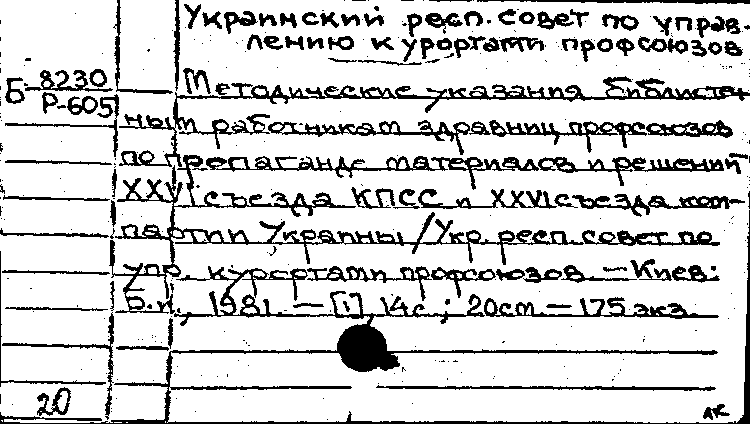 Украинский респ. совет по управ-
лению курортами профсоюзов
Б 8230
Р-605
Методические указания библиотеч-
ным работникам здравниц профсоюзов
по пропаганде материалов и решений
XXVI съезда КПСС и XXVI съезда ком-
партии Украины / Укр. респ. совет по
упр. курортами профсоюзов. — Киев:
Б.и., 1981. — [1], 14с.; 20см. — 175 экз.
20
АК